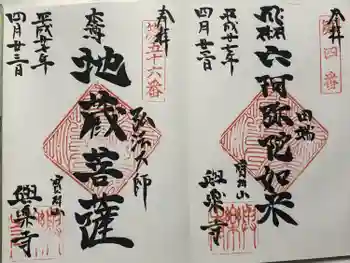 奉拝
四番
六阿弥陀如来
田端
寳珠山
與楽寺
平成廿七年
四月廿三日
奉拝
第五十六番
弘法大師
本尊
地蔵菩薩
寳珠山
與楽寺
平成廿七年
四月廿三日